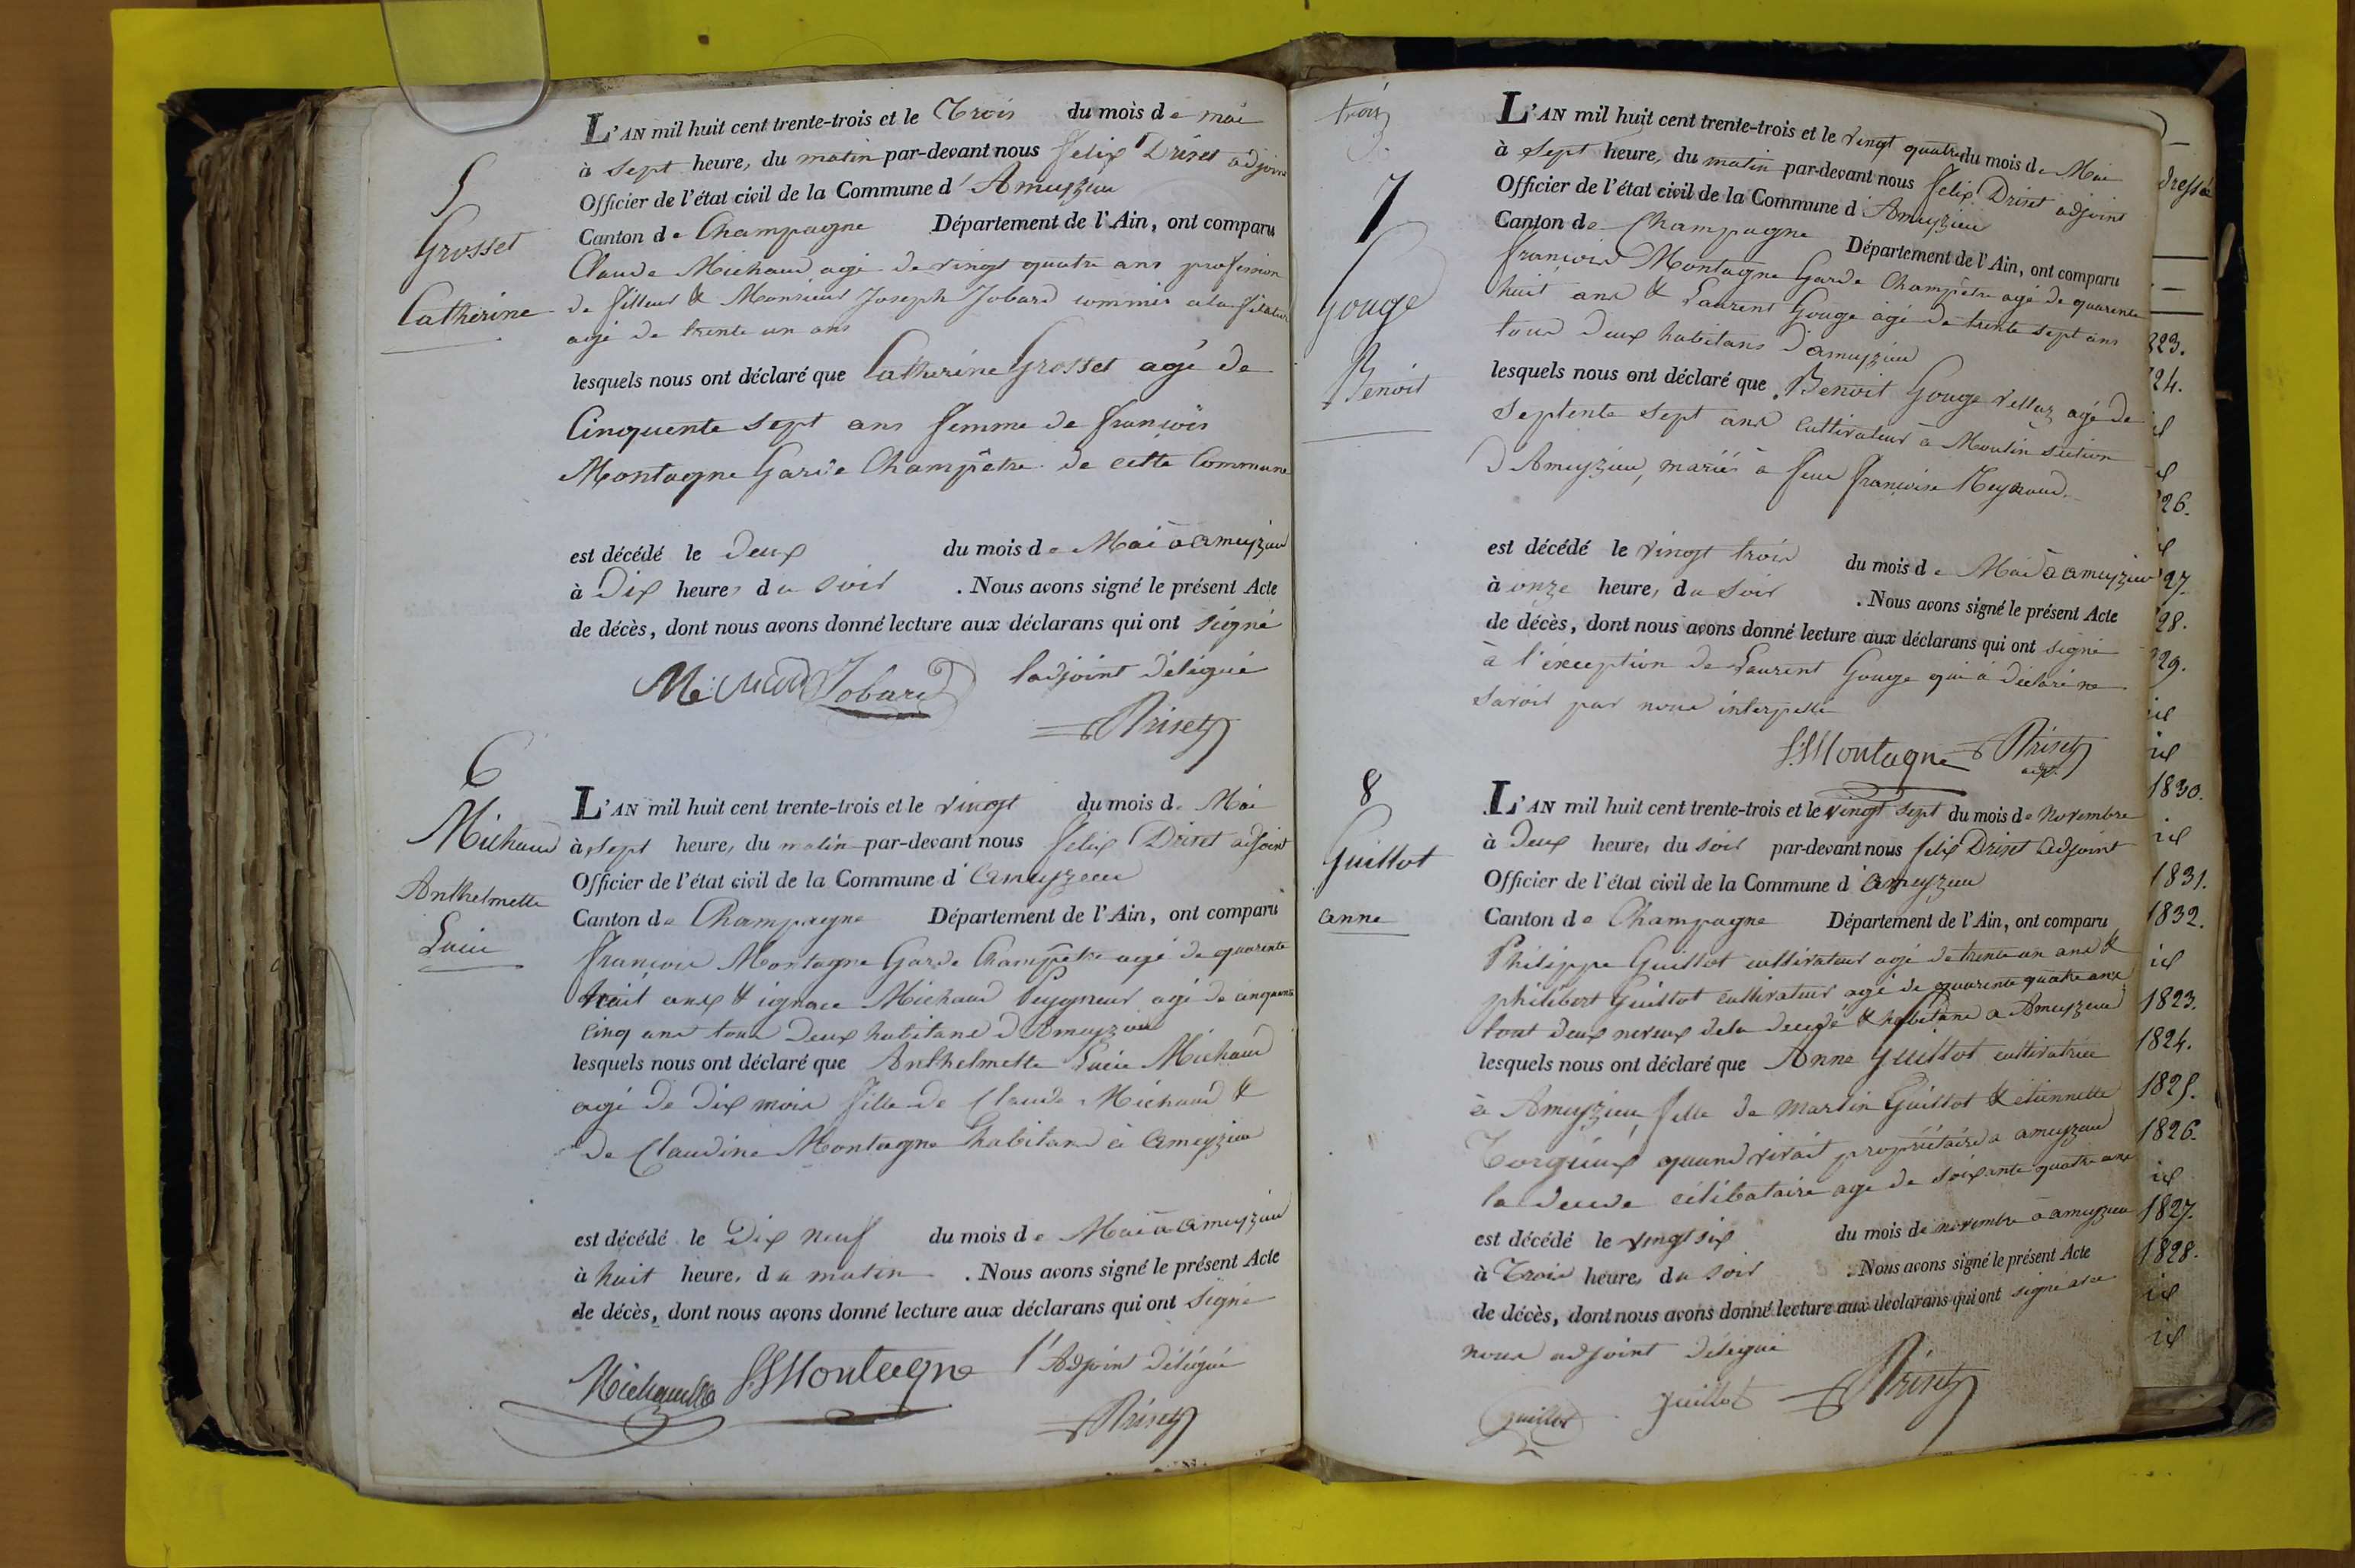 5
Grosset
Catherine
L'AN mil huit cent trente-trois et le Trois du mois de mai
à sept heures du matin par-devant nous felix Driset adjoint
Officier de l'état civil de la Commune d'Ameyzieu
Canton de Champagne Département de l'Ain, ont comparu
Claude Michaud agé de vingt quatre ans profession
de filleur & Monsieur Joseph Jobard commis a la filature
agé de trente un ans
lesquels nous ont déclaré que Catherine Grosset agé de
Cinquente sept ans femme de françois
Montagne Garde Champêtre de cette Commune
est décédé le deux du mois de Mai à ameyzieu
à Dix heures du soir . Nous avons signé le présent Acte
de décès, dont nous avons donné lecture aux déclarans qui ont signé
Jobard ladjoint délégué
Driset
6
Michaud
Anthelmette
Lucie
L'AN mil huit cent trente-trois et le vingt du mois de Mai
à sept heures du matin par-devant nous felix Driset adjoint
Officier de l'état civil de la Commune d'ameyzieu
Canton de Champagne Département de l'Ain, ont comparu
françois Montagne Garde Champêtre agé de quarente
huit ans & ignace Michaud agé de cinquante
cinq ans tous deux habitans d'Ameyzieu
lesquels nous ont déclaré que Anthelmette Lucie Michaud
agé de dix mois fille de Claude Michaud &
de Claudine Montagne habitans à ameyzieu
est décédé le dix neuf du mois de Mai à ameyzieu
à huit heures du matin . Nous avons signé le présent Acte
de décès, dont nous avons donné lecture aux déclarans qui ont signé
Montagne l'Adjoint délégué
Driset
trois
3.
7
Gouge
Benoit
L'AN mil huit cent trente-trois et le vingt quatre du mois de Mai
à sept heures du matin par-devant nous felix Driset adjoint
Officier de l'état civil de la Commune d'Ameyzieu
Canton de Champagne Département de l'Ain, ont comparu
françois Montagne Garde Champêtre agé de quarente
huit ans & Laurent Gouge agé de trente sept ans
tous deux habitans d'ameyzieu
lesquels nous ont déclaré que Benoit Gouge agé de
septente sept ans cultivateur à Moulin section
d'Ameyzieu, mariés à feue françoise
est décédé le vingt trois du mois de Mai à ameyzieu
à onze heures du soir . Nous avons signé le présent Acte
de décès, dont nous avons donné lecture aux déclarans qui ont signé
à l'éxception de Laurent Gouge qui à déclaré ne
savoir par nous interpellé
Montagne Driset
adjt.
8
Guillot
anne
L'AN mil huit cent trente-trois et le vingt sept du mois de Novembre
à deux heures du soir par-devant nous felix Driset adjoint
Officier de l'état civil de la Commune d'ameyzieu
Canton de Champagne Département de l'Ain, ont comparu
Philippe Guillot cultivateur agé de trente un ans &
philibert Guillot cultivateur agé de quarente quatre ans
tout deux neveux de la & habitans a Ameyzieu
lesquels nous ont déclaré que Anne Guillot cultivatrice
à Ameyzieu fille de Martin Guillot & etiennette
quand vivait propriétaires a ameyzieu
la célibataire agé de soixante quatre ans
est décédé le vingt six du mois de novembre à ameyzieu
à Trois heures du soir . Nous avons signé le présent Acte
de décès, dont nous avons donné lecture aux déclarans qui ont signé avec
nous adjoint délégué
guillot guillot Driset
23.
24.
26.
27.
28.
29.
id
id
1830.
id
1831.
1832.
id
1823.
1824.
1825.
1826.
id
1827.
1828.
id
id